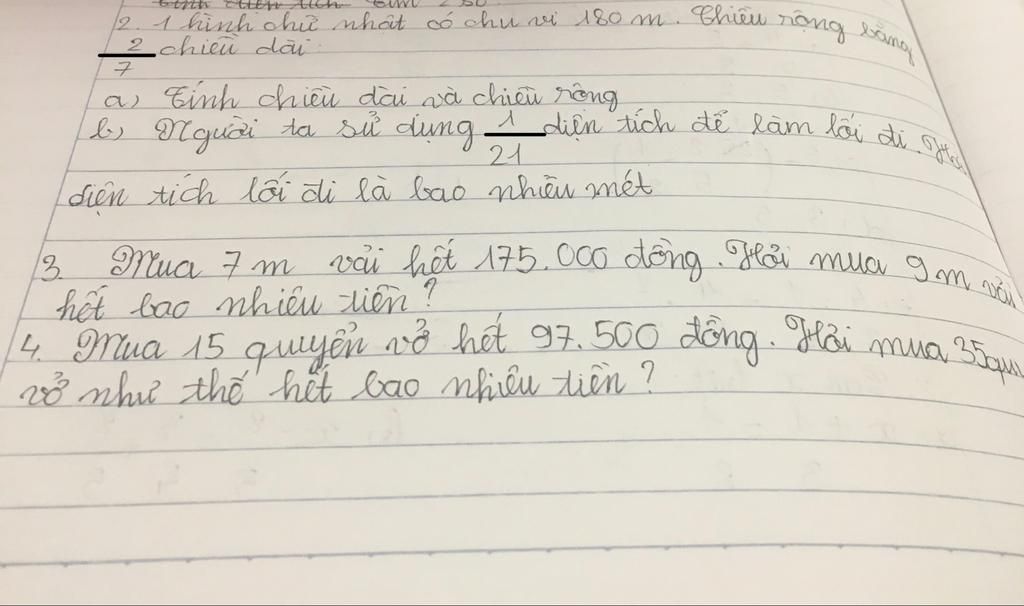 2. 1 hình chữ nhật có chu vi 180 m. Chiều rộng bằng
2/7 chiều dài
a) Tính chiều dài và chiều rộng
b) Người ta sử dụng 1/21 diện tích để làm lối đi. Hỏi
diện tích lối đi là bao nhiêu mét
3. Mua 7 m vải hết 175.000 đồng. Hỏi mua 9 m vải
hết bao nhiêu tiền?
4. Mua 15 quyển vở hết 97.500 đồng. Hỏi mua 35 quy
vở như thế hết bao nhiêu tiền?